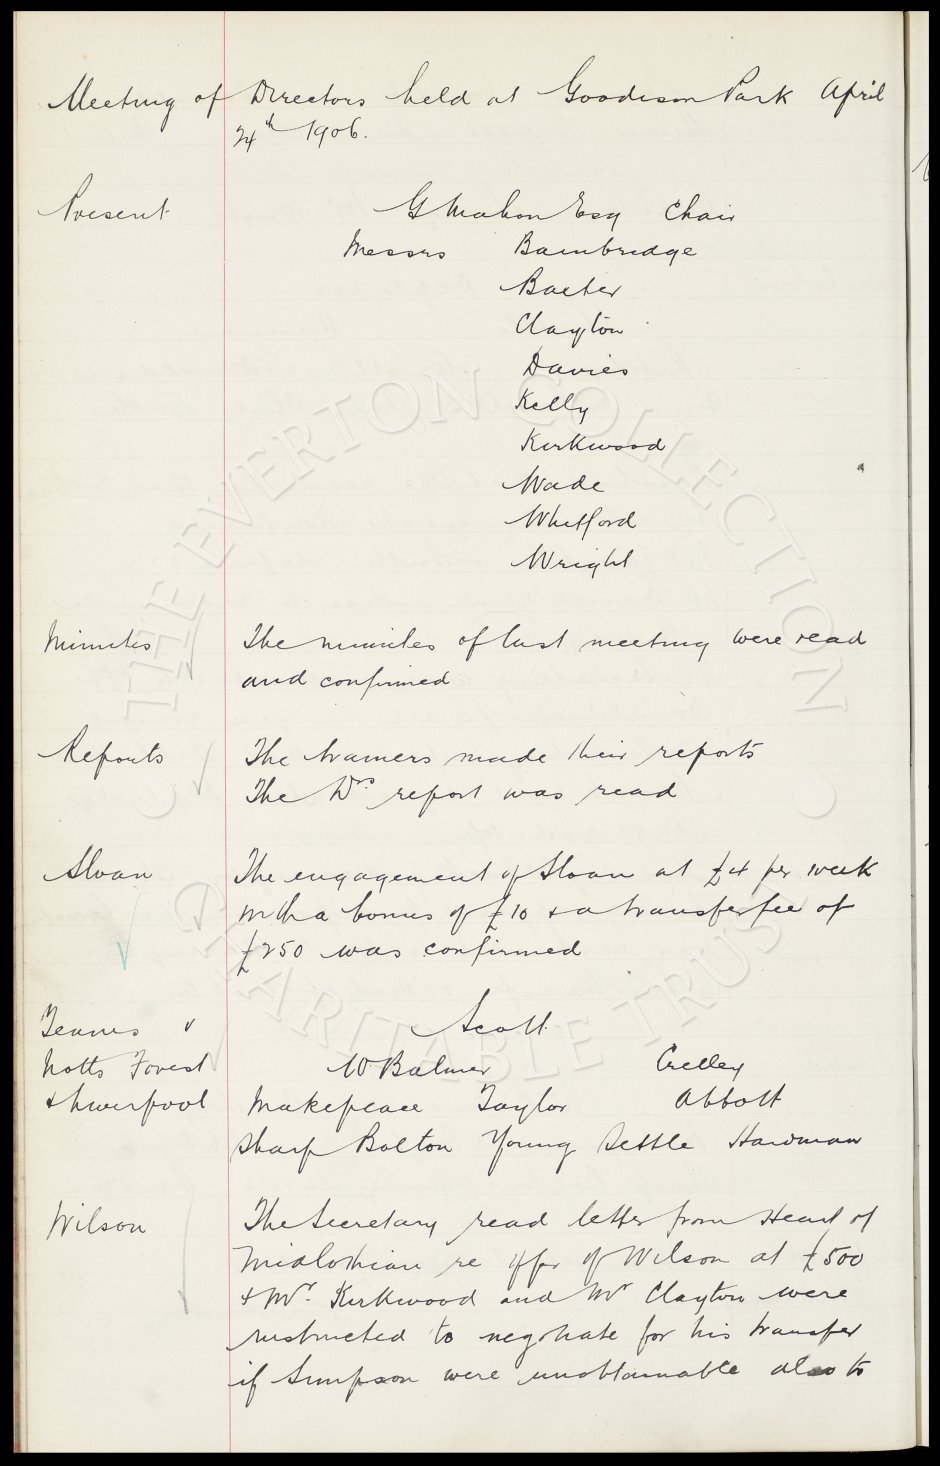 Meeting of Directors held at Goodison Park April
24th 1906.
Present
G Mahon Esq Chair
Messrs Bainbridge
Baxter
Clayton
Davies
Kelly
Kirkwood
Wade
Whitford
Wright
Minutes
The minutes of last meeting were read
and confirmed
Reports
The trainers made their reports
The Drs report was read
Sloan
The engagement of Sloan at £4 per week
with a bonus of £10 & a transfer fee of
£250 was confirmed
Teams v
Scott
Notts Forest
W Balmer Crelley
& Liverpool
Makepeace Taylor Abbott
Sharp Bolton Young Settle Hardman
Wilson
The Secretary read letter from Heart of
Midlothian re offer of Wilson at £500
& Mr. Kirkwood and Mr Clayton were
instructed to negotiate for his transfer
if Simpson were unobtainable also to
THE EVERTON COLLECTION
CHARITABLE TRUST